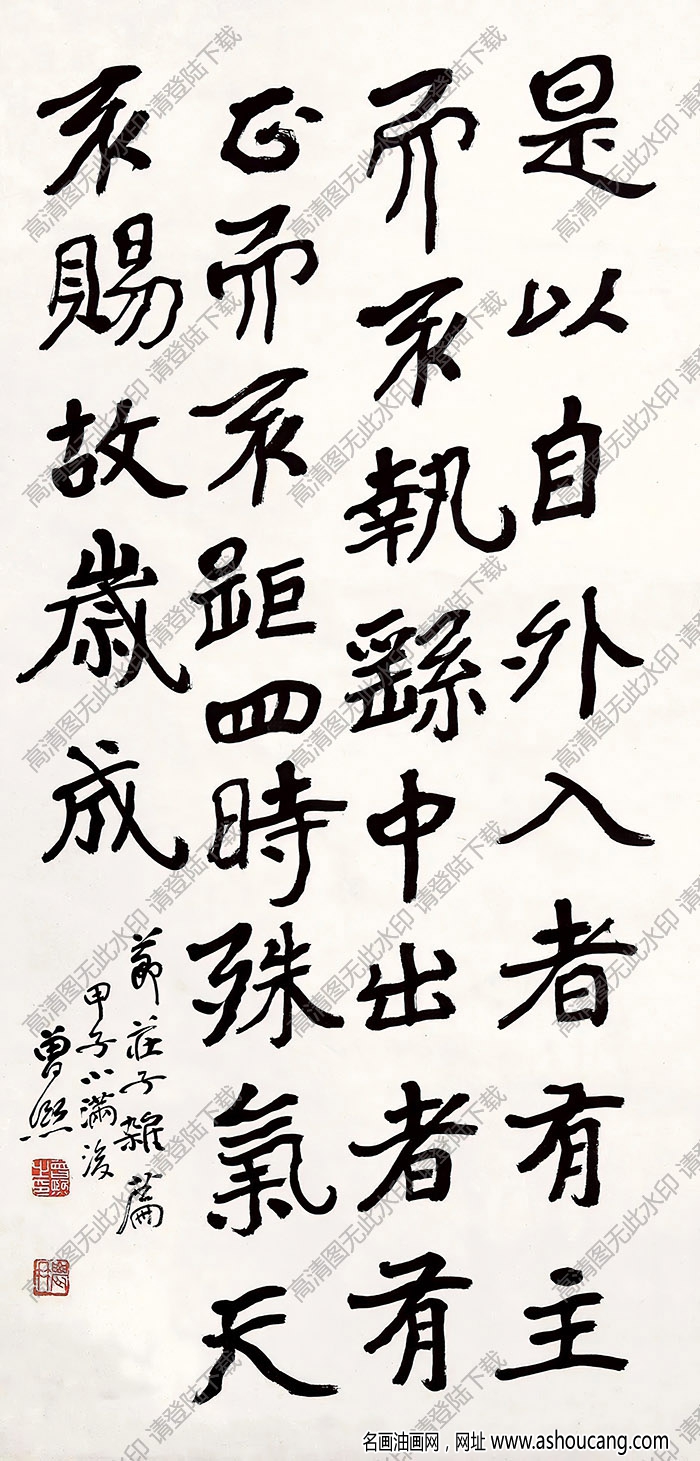 是以自外入者有主
而不執繇中出者有
正而不距四時殊氣天
不賜故歲成
節莊子雜篇
甲子小滿後
曾熙
高清图无此水印 请登陆下载
名画油画网，网址 www.ashoucang.com